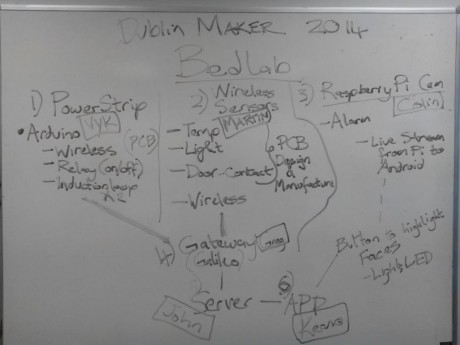 Dublin Maker 2014
BedLab
1) PowerStrip
• Arduino VYK (PCB)
— Wireless
— Relay (on/off)
— Induction loop
2) Wireless
Sensors
MARTIN
— Temp
— Light
— Door-Contact
— Wireless
PCB
Design
&
Manufacture
3) Raspberry Pi Cam
Colin
— Alarm
— Live Stream
from Pi to
Android
4) Gateway Greg
Galileo
Button to highlight
Faces
— Lights LED
Server — APP
6)
John